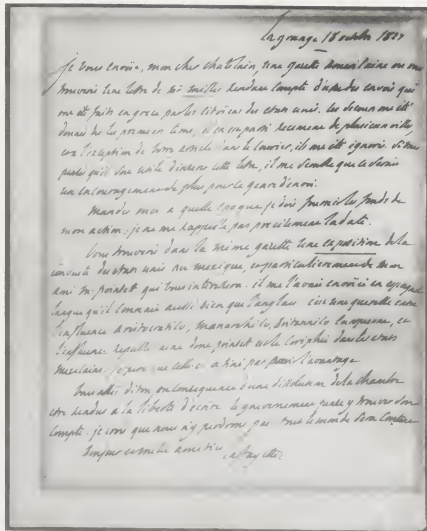 Lagrange 18 octobre 1827
je vous envoie, mon cher chatelain, une gazette americaine ou vous
trouverés une lettre de Mr miller rendant compte d'un des envois qui
ont été faits en grece par les citoiens des etats unis. les secours ont été
donnés de la premiere
l'exception de votre article dans le Courier, il me été ignoré. si vous
pensés qu'il soit utile d'inserer cette lettre, il me semble que ce serait
un encouragement de plus pour le genre d'envoi.
mandés moi a quelle epoque je dois fournir les fonds de
mon action; je ne me rappelle pas precisement la date.
Vous trouverés dans la même gazette une exposition de la
conduite des etats unis au mexique, et particulierement de mon
ami Mr poinsett qui vous interessera. il me l'avait envoiée en espagnol
langue qu'il connait aussi bien que l'anglais c'est une querelle entre
l'influence aristocratile, monarchile, britannile, europeenne, et
l'influence republicaine dont poinsett est le Coriphée dans les etats
mexicains. je crois que celle-ci a fini par avoir l'avantage.
Vous allés être en consequence d'une dissolution de la chambre
etre rendus a la liberté d'ecrire le gouvernement pense y trouver son
compte. je crois que nous n'y perdrons pas tout le monde sera content
bonjour et mille amitiés
Lafayette